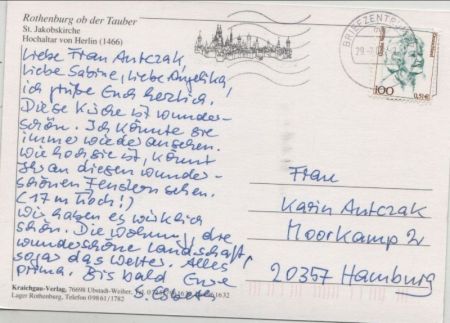 Rothenburg ob der Tauber
St. Jakobskirche
Hochaltar von Herlin (1466)
Liebe Frau Antczak,
liebe Sabine, liebe Angelika,
ich grüße Euch herzlich.
Diese Kirche ist wunder-
schön. Ich könnte sie
immer wieder ansehen.
Wie hoch sie ist, könnt
Ihr an diesen wunder-
schönen Fenstern sehen.
(17 m hoch!)
Wir haben es wirklich
schön. Die Wohnung, die
wunderschöne Landschaft,
sogar das Wetter. Alles
prima. Bis bald Eure
Kraichgau-Verlag, 76698 Ubstadt-Weiher,
Lager Rothenburg, Telefon 09861/1782
BRIEFZENTRUM
100
0,51€
Frau
Karin Antczak
Moorkamp 2
20357 Hamburg